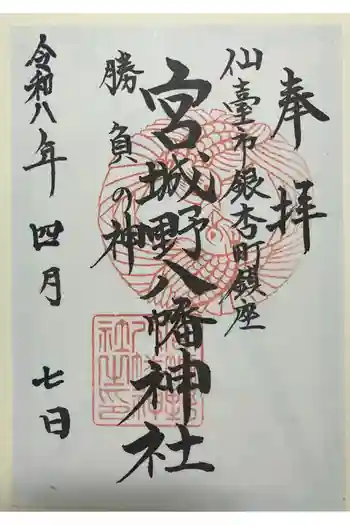 奉拝
仙臺市銀杏町鎮座
宮城野八幡神社
勝負の神
令和八年四月七日